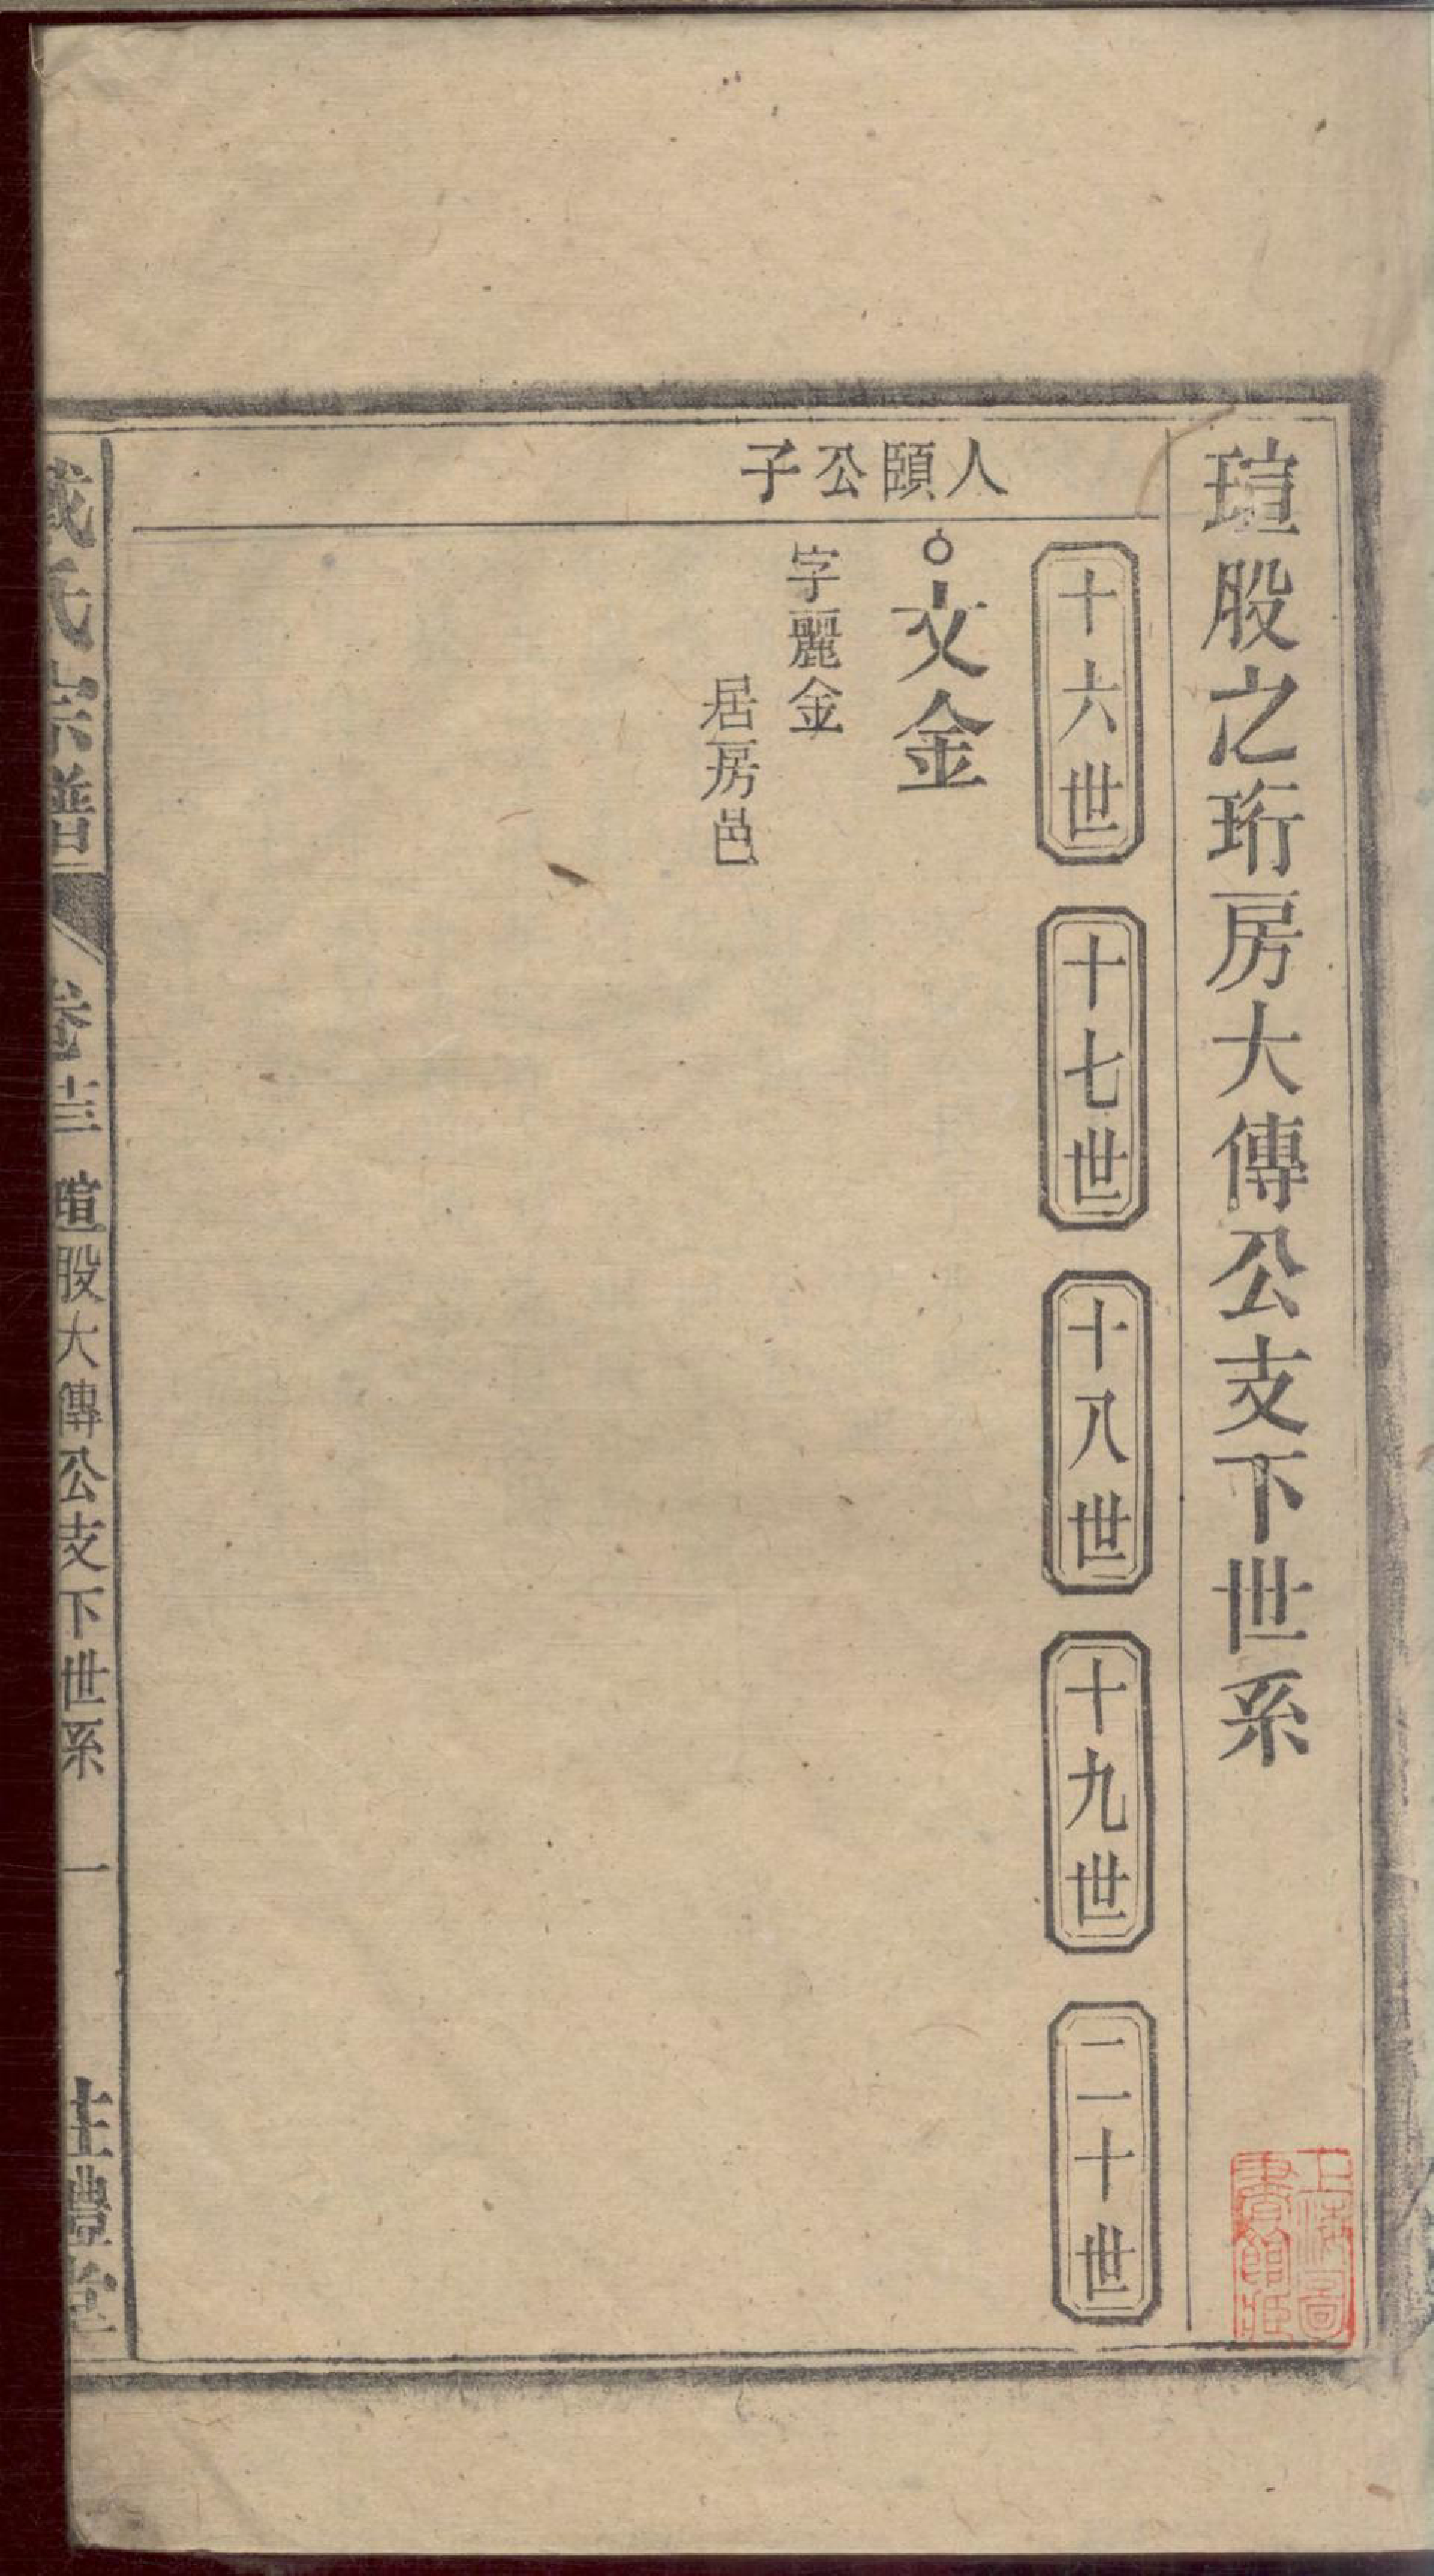 瑄股之珩房大傳公支下世系
十六世
十七世
十八世
十九世
二十世
人頤公子
文金
字麗金
居房邑
氏宗譜
卷十三
瑄股大傳公支下世系
一
禮堂
上海圖
書館藏